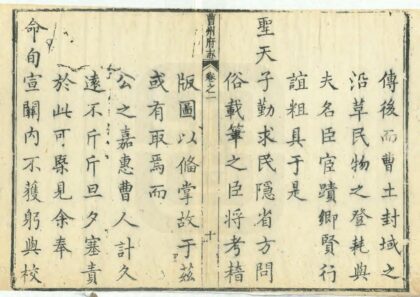 傳後而曹土封域之
沿革民物之登耗與
夫名臣宦蹟卿賢行
誼粗具于是
聖天子勤求民隱省方問
俗載筆之臣将考稽
曹州府志
卷之一
十
版圖以備掌故于茲
或有取焉而
公之嘉惠曹人計久
遠不斤斤旦夕塞責
於此可槩見余奉
命旬宣關內不獲躬與校